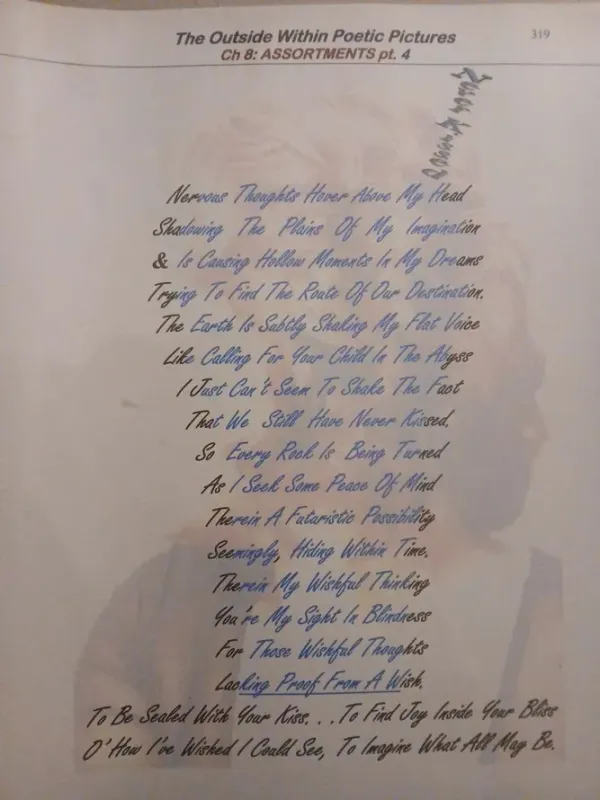 The Outside Within Poetic Pictures
319
Ch 8: ASSORTMENTS pt. 4
Nervous Thoughts Hover Above My Head
Shadowing The Plains Of My Imagination
& Is Causing Hollow Moments In My Dreams
Trying To Find The Route Of Our Destination.
The Earth Is Subtly Shaking My Flat Voice
Like Calling For Your Child In The Abyss
I Just Can't Seem To Shake The Fact
That We Still Have Never Kissed.
So Every Rock Is Being Turned
As I Seek Some Peace Of Mind
Therein A Futuristic Possibility
Seemingly, Hiding Within Time.
Therein My Wishful Thinking
You're My Sight In Blindness
For Those Wishful Thoughts
Lacking Proof From A Wish.
To Be Sealed With Your Kiss. . .To Find Joy Inside Your Bliss
O' How I've Wished I Could See, To Imagine What All May Be.